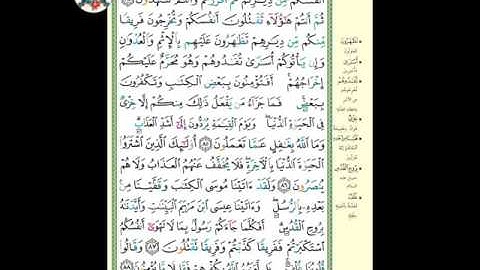 مِّن دِيَـٰرِكُمْ ثُمَّ أَقْرَرْتُمْ وَأَنتُمْ تَشْهَدُونَ
ثُمَّ أَنتُمْ هَـٰٓؤُلَآءِ تَقْتُلُونَ أَنفُسَكُمْ وَتُخْرِجُونَ فَرِيقًا
مِّنكُم مِّن دِيَـٰرِهِمْ تَظَـٰهَرُونَ عَلَيْهِم بِٱلْإِثْمِ وَٱلْعُدْوَٰنِ
وَإِن يَأْتُوكُمْ أُسَـٰرَىٰ تُفَـٰدُوهُمْ وَهُوَ مُحَرَّمٌ عَلَيْكُمْ
إِخْرَاجُهُمْ ۚ أَفَتُؤْمِنُونَ بِبَعْضِ ٱلْكِتَـٰبِ وَتَكْفُرُونَ
بِبَعْضٍ ۚ فَمَا جَزَآءُ مَن يَفْعَلُ ذَٰلِكَ مِنكُمْ إِلَّا خِزْىٌ
فِى ٱلْحَيَوٰةِ ٱلدُّنْيَا ۖ وَيَوْمَ ٱلْقِيَـٰمَةِ يُرَدُّونَ إِلَىٰٓ أَشَدِّ ٱلْعَذَابِ ۗ
وَمَا ٱللَّهُ بِغَـٰفِلٍ عَمَّا تَعْمَلُونَ ٨٥ أُو۟لَـٰٓئِكَ ٱلَّذِينَ ٱشْتَرَوُا۟
ٱلْحَيَوٰةَ ٱلدُّنْيَا بِٱلْـَٔاخِرَةِ ۖ فَلَا يُخَفَّفُ عَنْهُمُ ٱلْعَذَابُ وَلَا هُمْ
يُنصَرُونَ ٨٦ وَلَقَدْ ءَاتَيْنَا مُوسَى ٱلْكِتَـٰبَ وَقَفَّيْنَا مِنۢ
بَعْدِهِۦ بِٱلرُّسُلِ ۖ وَءَاتَيْنَا عِيسَى ٱبْنَ مَرْيَمَ ٱلْبَيِّنَـٰتِ وَأَيَّدْنَـٰهُ
بِرُوحِ ٱلْقُدُسِ ۗ أَفَكُلَّمَا جَآءَكُمْ رَسُولٌۢ بِمَا لَا تَهْوَىٰٓ أَنفُسُكُمُ
ٱسْتَكْبَرْتُمْ فَفَرِيقًا كَذَّبْتُمْ وَفَرِيقًا تَقْتُلُونَ ٨٧ وَقَالُوا۟
قُلُوبُنَا غُلْفٌۢ ۚ بَل لَّعَنَهُمُ ٱللَّهُ بِكُفْرِهِمْ فَقَلِيلًا مَّا يُؤْمِنُونَ ٨٨